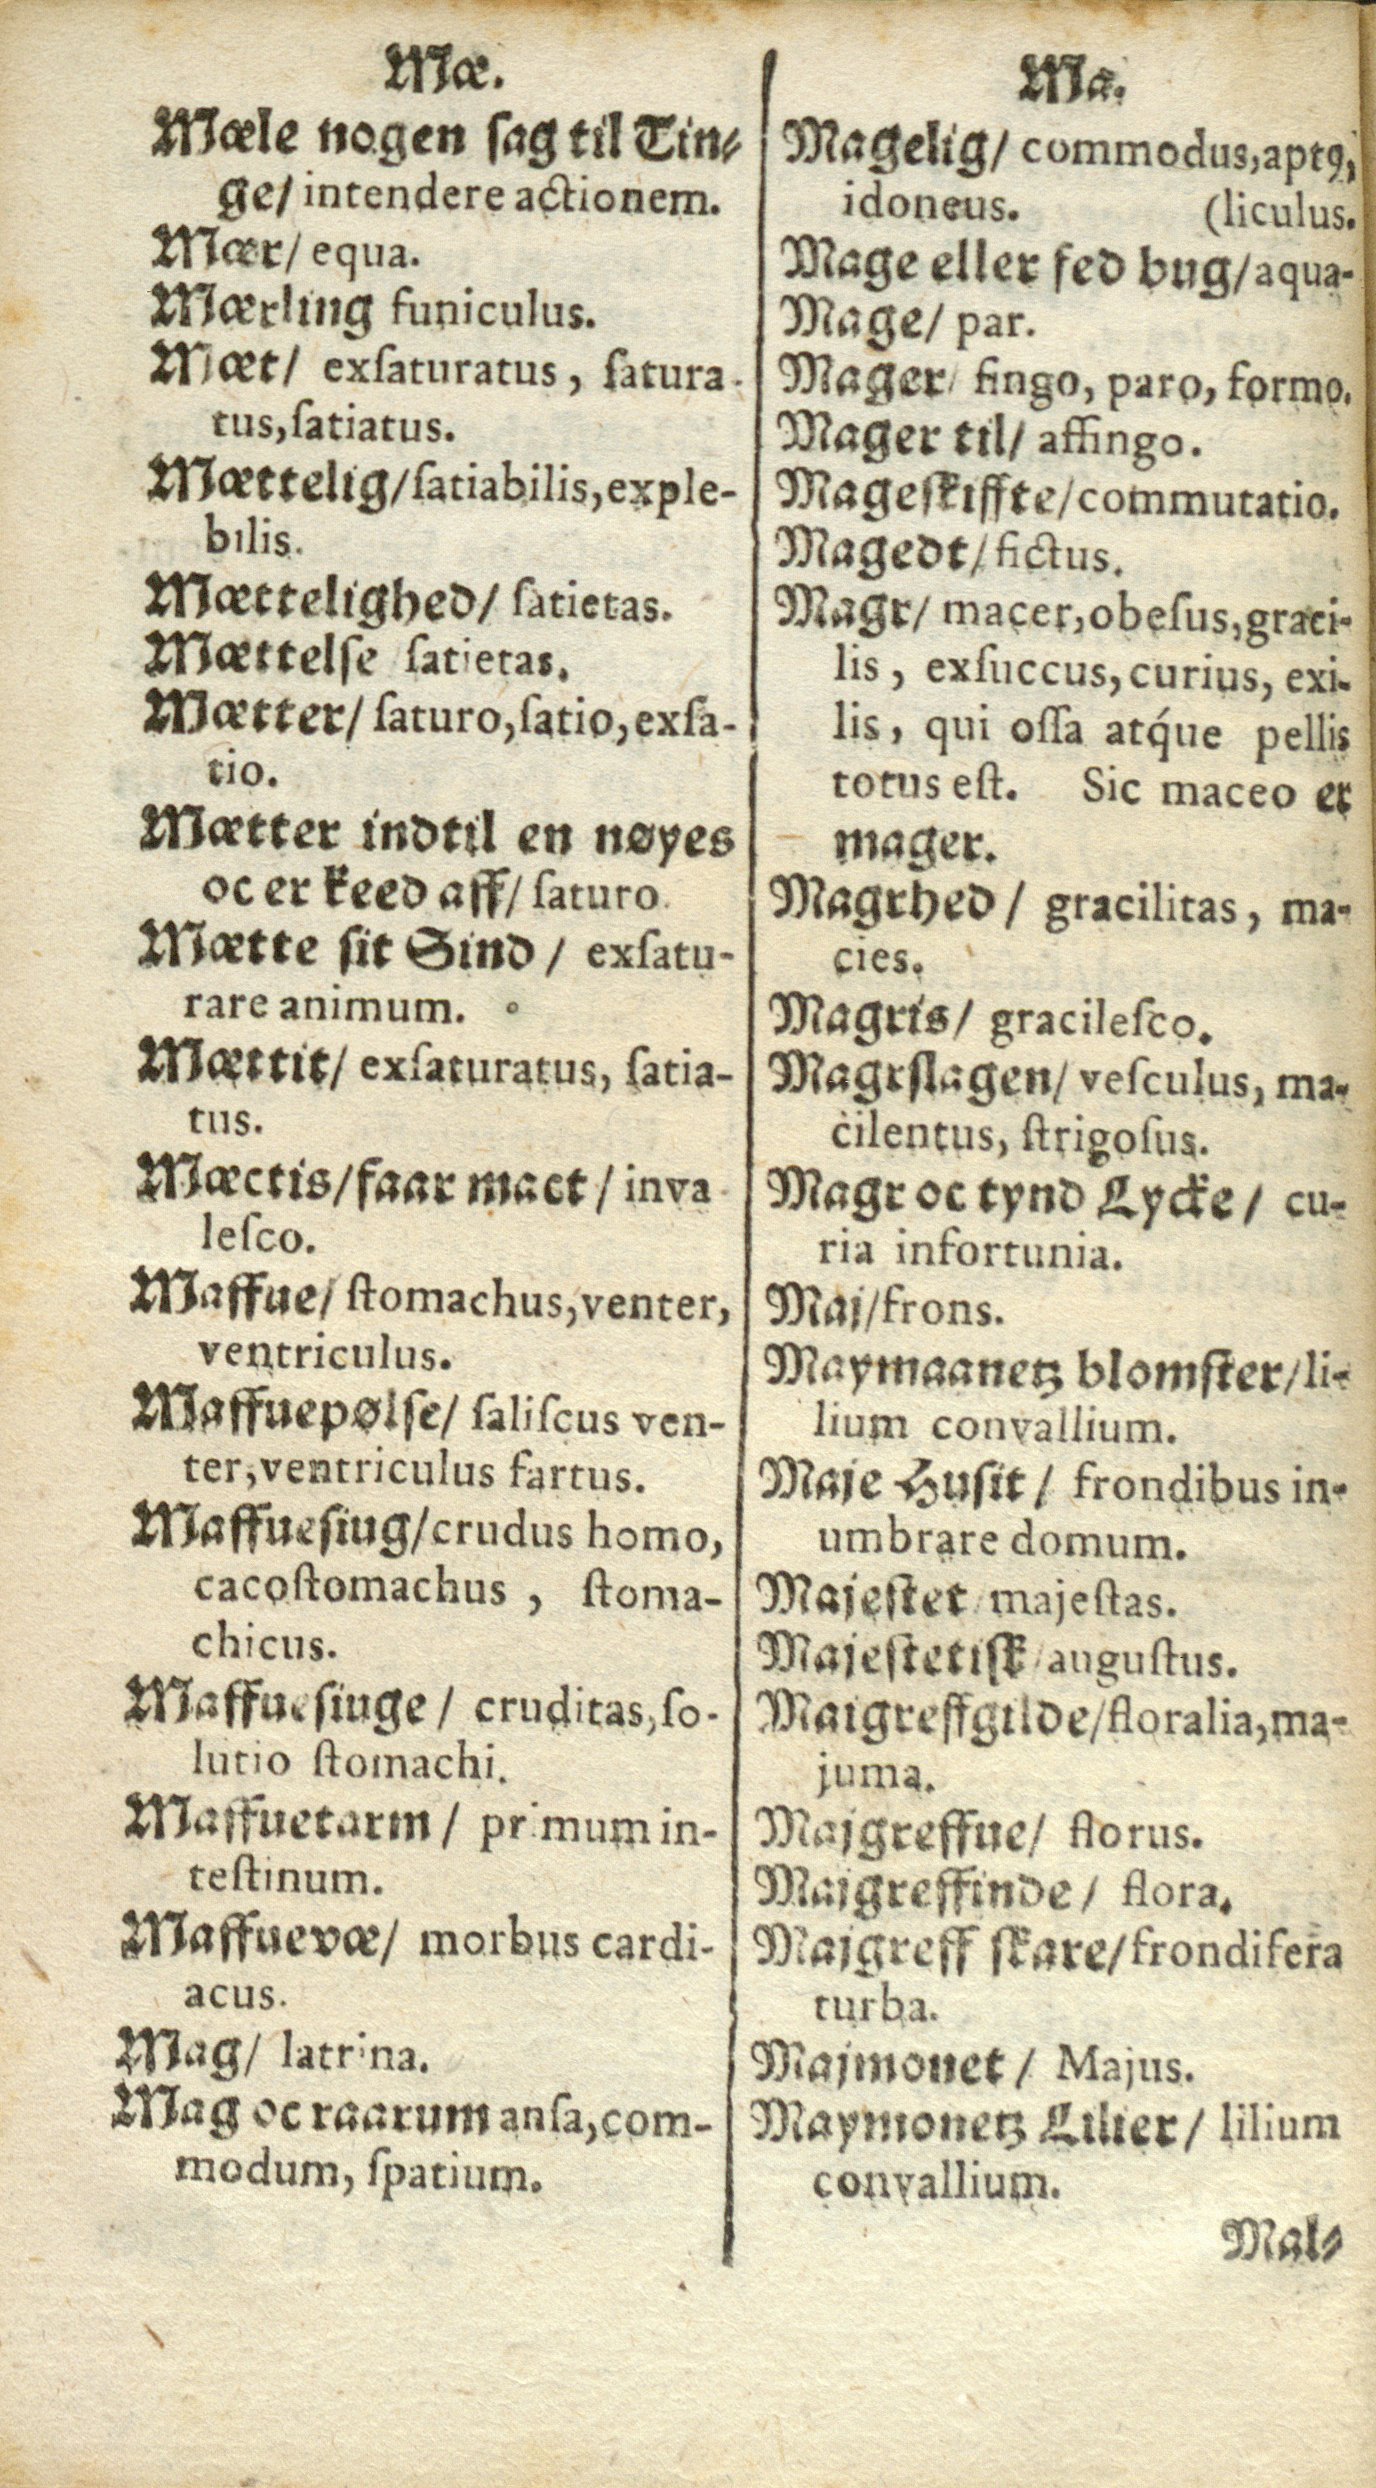 Mæ.
Mæle nogen ſag til Tin⸗
ge/ intendere actionem.
Mær/ equa.
Mærling funiculus.
Mæt/ exſaturatus, ſatura-
tus, ſatiatus.
Mættelig/ ſatiabilis, exple-
bilis.
Mættelighed/ ſatietas.
Mættelſe ſatietas.
Mætter/ ſaturo, ſatio, exſa-
tio.
Mætter indtil en nøyes
oc er keed aff/ ſaturo.
Mætte ſit Sind / exſatu-
rare animum.
Mættit/ exſaturatus, ſatia-
tus.
Mæctis/ faar mact / inva-
leſco.
Maffue/ ſtomachus, venter,
ventriculus.
Maffuepølſe/ ſaliſcus ven-
ter, ventriculus fartus.
Maffueſiug/ crudus homo,
cacoſtomachus, ſtoma-
chicus.
Maffueſiuge / cruditas, ſo-
lutio ſtomachi.
Maffuetarm / primum in-
teſtinum.
Maffuevæ/ morbus cardi-
acus.
Mag/ latrina.
Mag oc raarum anſa, com-
modum, ſpatium.
Ma.
Magelig/ commodus, aptꝰ,
idoneus. (liculus.
Mage eller fed bug/ aqua-
Mage/ par.
Mager/ fingo, paro, formo.
Mager til/ affingo.
Mageſkiffte/ commutatio.
Magedt/ fictus.
Magr/ macer, obeſus, graci-
lis, exſuccus, curius, exi-
lis, qui oſſa atq́ue pellis
totus eſt. Sic maceo er
mager.
Magrhed / gracilitas, ma-
cies.
Magris/ gracileſco.
Magrſlagen/ veſculus, ma-
cilentus, ſtrigoſus.
Magr oc tynd Lycke / cu-
ria infortunia.
Maj/ frons.
Maymaanetz blomſter/ li-
lium convallium.
Maje Huſit / frondibus in-
umbrare domum.
Majeſtet/ majeſtas.
Majeſtetiſk/ auguſtus.
Maigreffgilde/ floralia, ma-
juma.
Majgreffue/ florus.
Majgreffinde / flora.
Majgreff ſkare/ frondifera
turba.
Majmonet / Majus.
Maymonetz Lilier / lilium
convallium.
Mal⸗